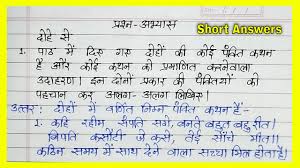 Short Answers
प्रश्न-अभ्यास
दोहे से
1. पाठ में दिए गए दोहों की कोई पंक्ति कथन
है और कोई कथन को प्रमाणित करनेवाला
उदाहरण। इन दोनों प्रकार की पंक्तियों को
पहचान कर अलग-अलग लिखिए।
उत्तर: दोहों में वर्णित निम्न पंक्ति कथन हैं-
1. कहि रहीम संपति सगे, बनते बहुत बहु रीत।
बिपति कसौटी जे कसे, तेई साँचे मीत॥
कठिन समय में साथ देने वाला सच्चा मित्र होता है।